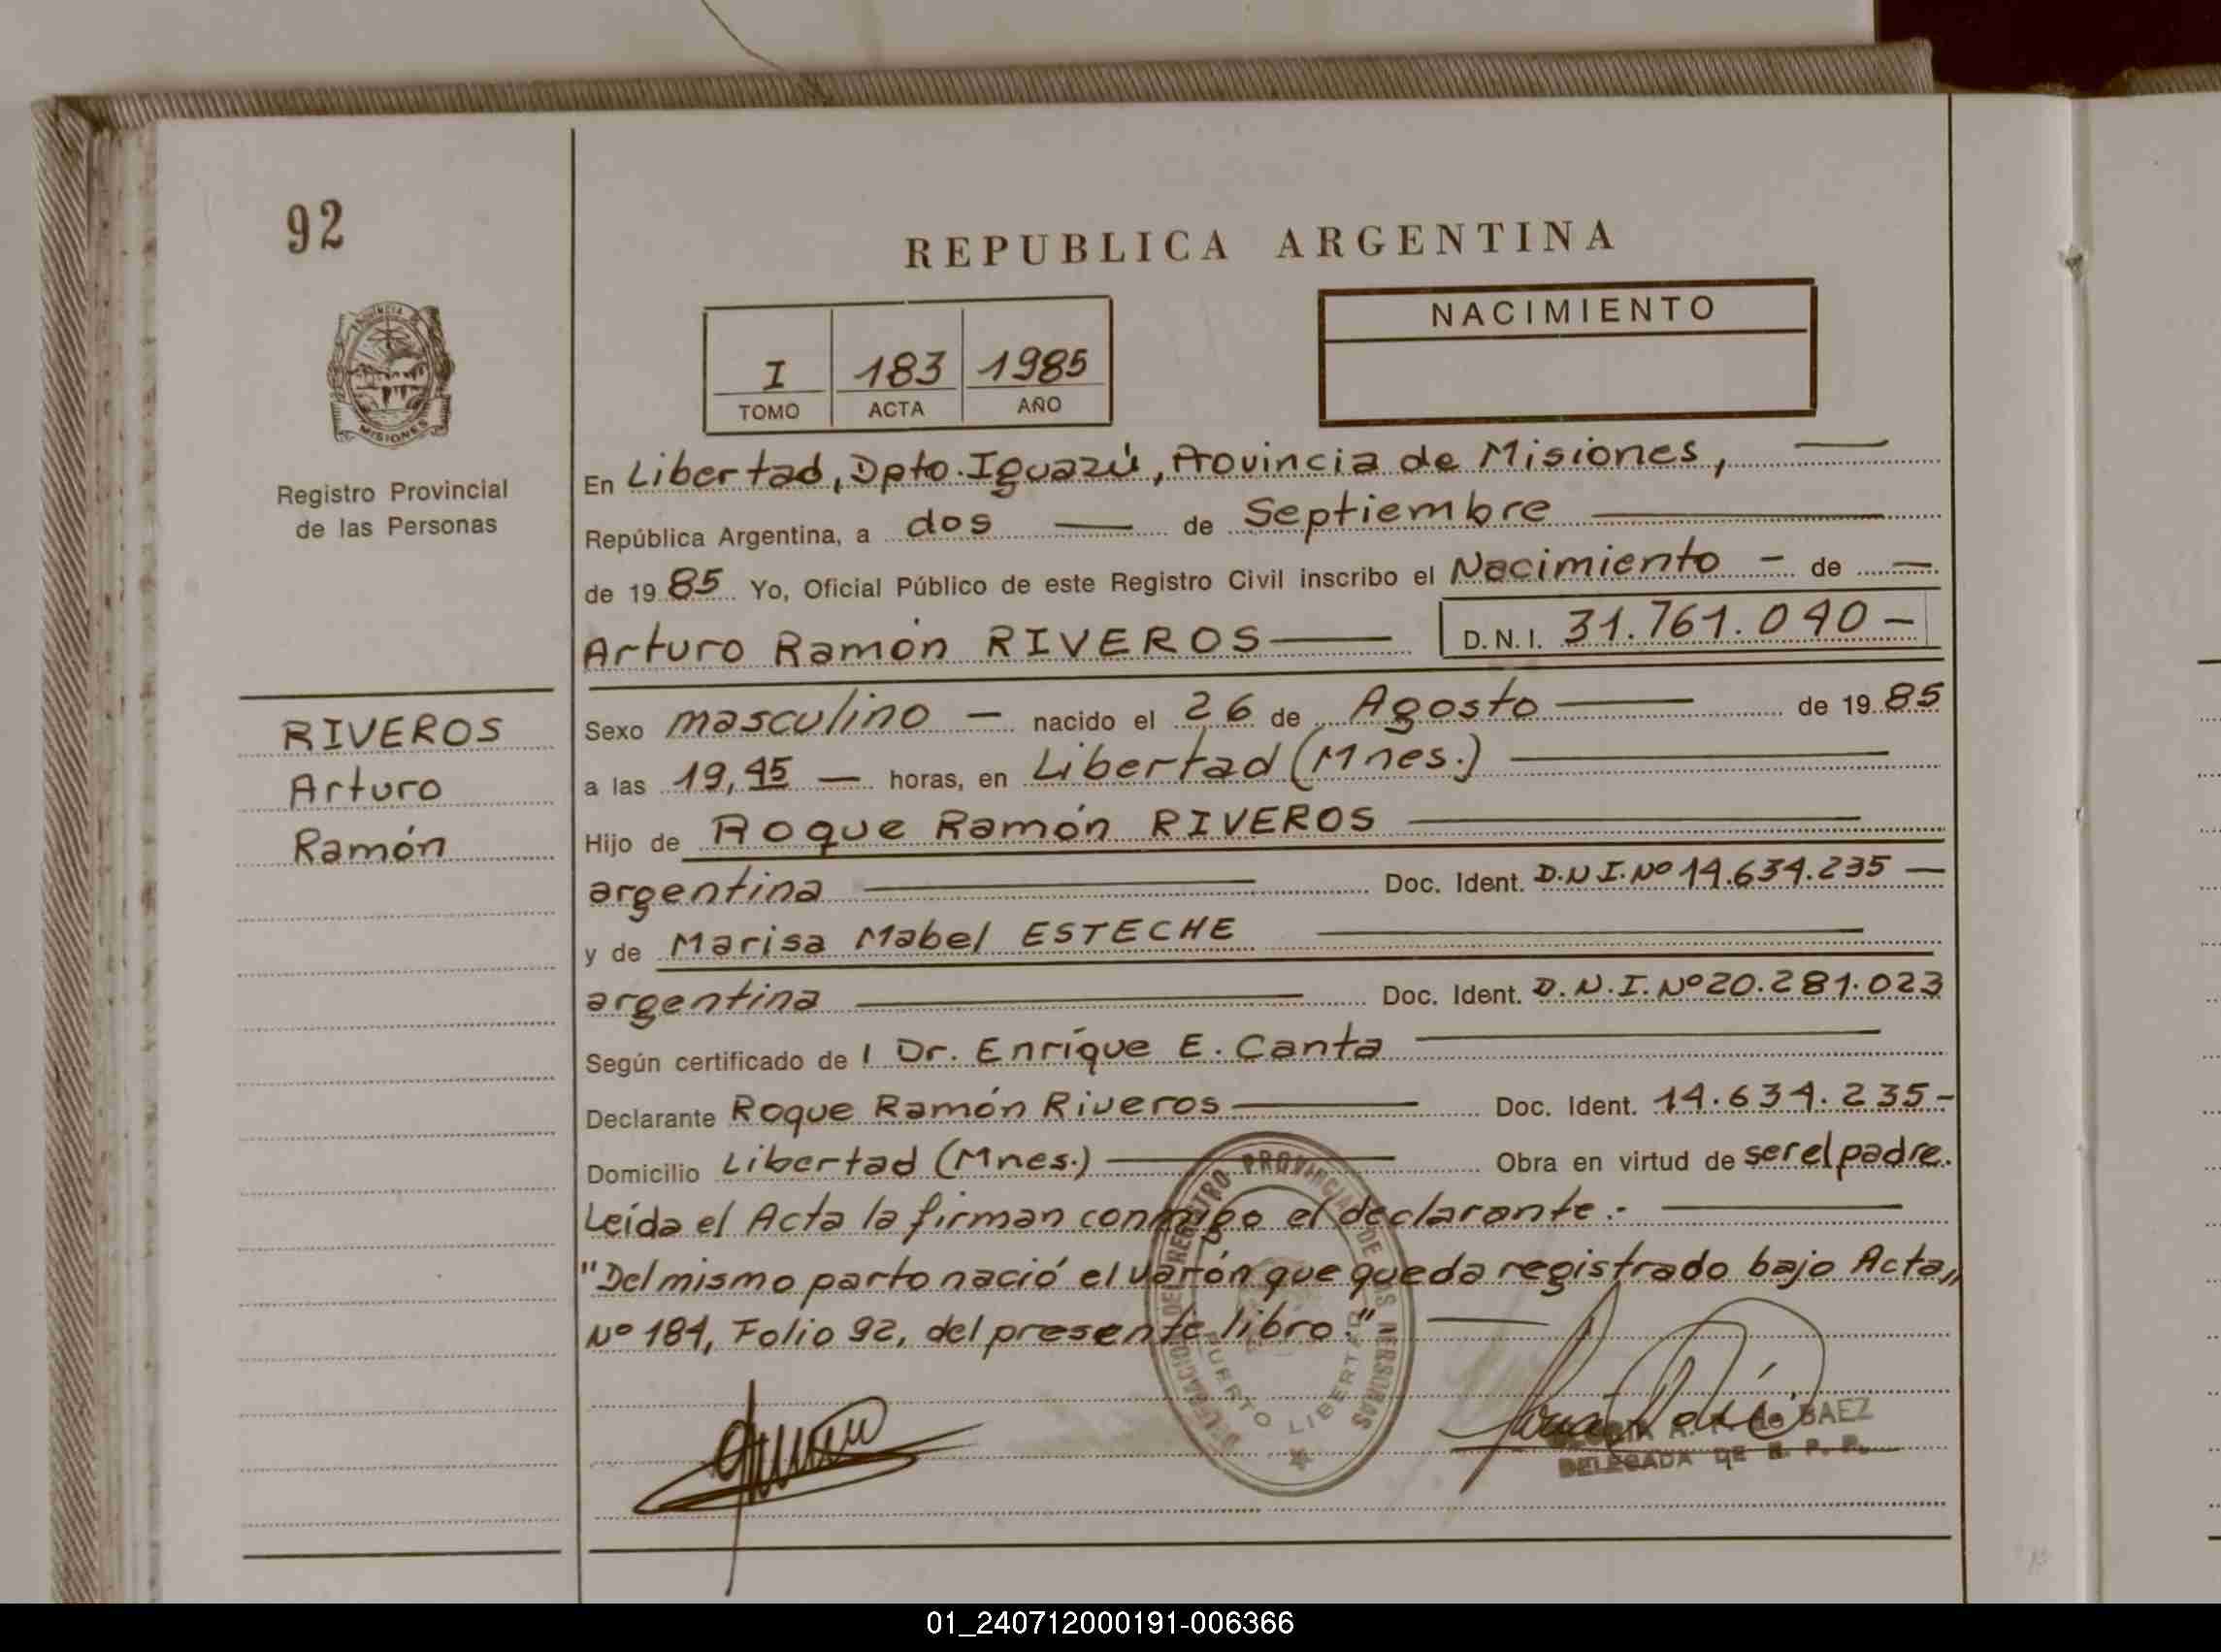 92
PROVINCIA DE
MISIONES
Registro Provincial
de las Personas
RIVEROS
Arturo
Ramón
REPUBLICA ARGENTINA
I 183 1985
TOMO ACTA AÑO
NACIMIENTO
En Libertad, Dpto. Iguazú, Provincia de Misiones,
República Argentina, a dos de Septiembre
de 1985 Yo, Oficial Público de este Registro Civil inscribo el Nacimiento - de
Arturo Ramón RIVEROS D.N.I. 31.761.040 -
Sexo masculino - nacido el 26 de Agosto de 1985
a las 19,45 horas, en Libertad (Mnes.)
Hijo de Roque Ramón RIVEROS
argentina Doc. Ident. D.N.I. Nº 14.634.235
y de Marisa Mabel ESTECHE
argentina Doc. Ident. D.N.I. Nº 20.281.023
Según certificado de l Dr. Enrique E. Canta
Declarante Roque Ramón Riveros Doc. Ident. 14.634.235-
Domicilio Libertad (Mnes.) Obra en virtud de ser el padre.
Leída el Acta la firman conmigo el declarante.-
"Del mismo parto nació el varón que queda registrado bajo Acta,,
Nº 184, Folio 92, del presente libro."-
DELEGACION DEL REGISTRO PROVINCIAL DE LAS PERSONAS
PUERTO LIBERTAD
de BAEZ
DELEGADA DE R. P. P.
01_240712000191-006366